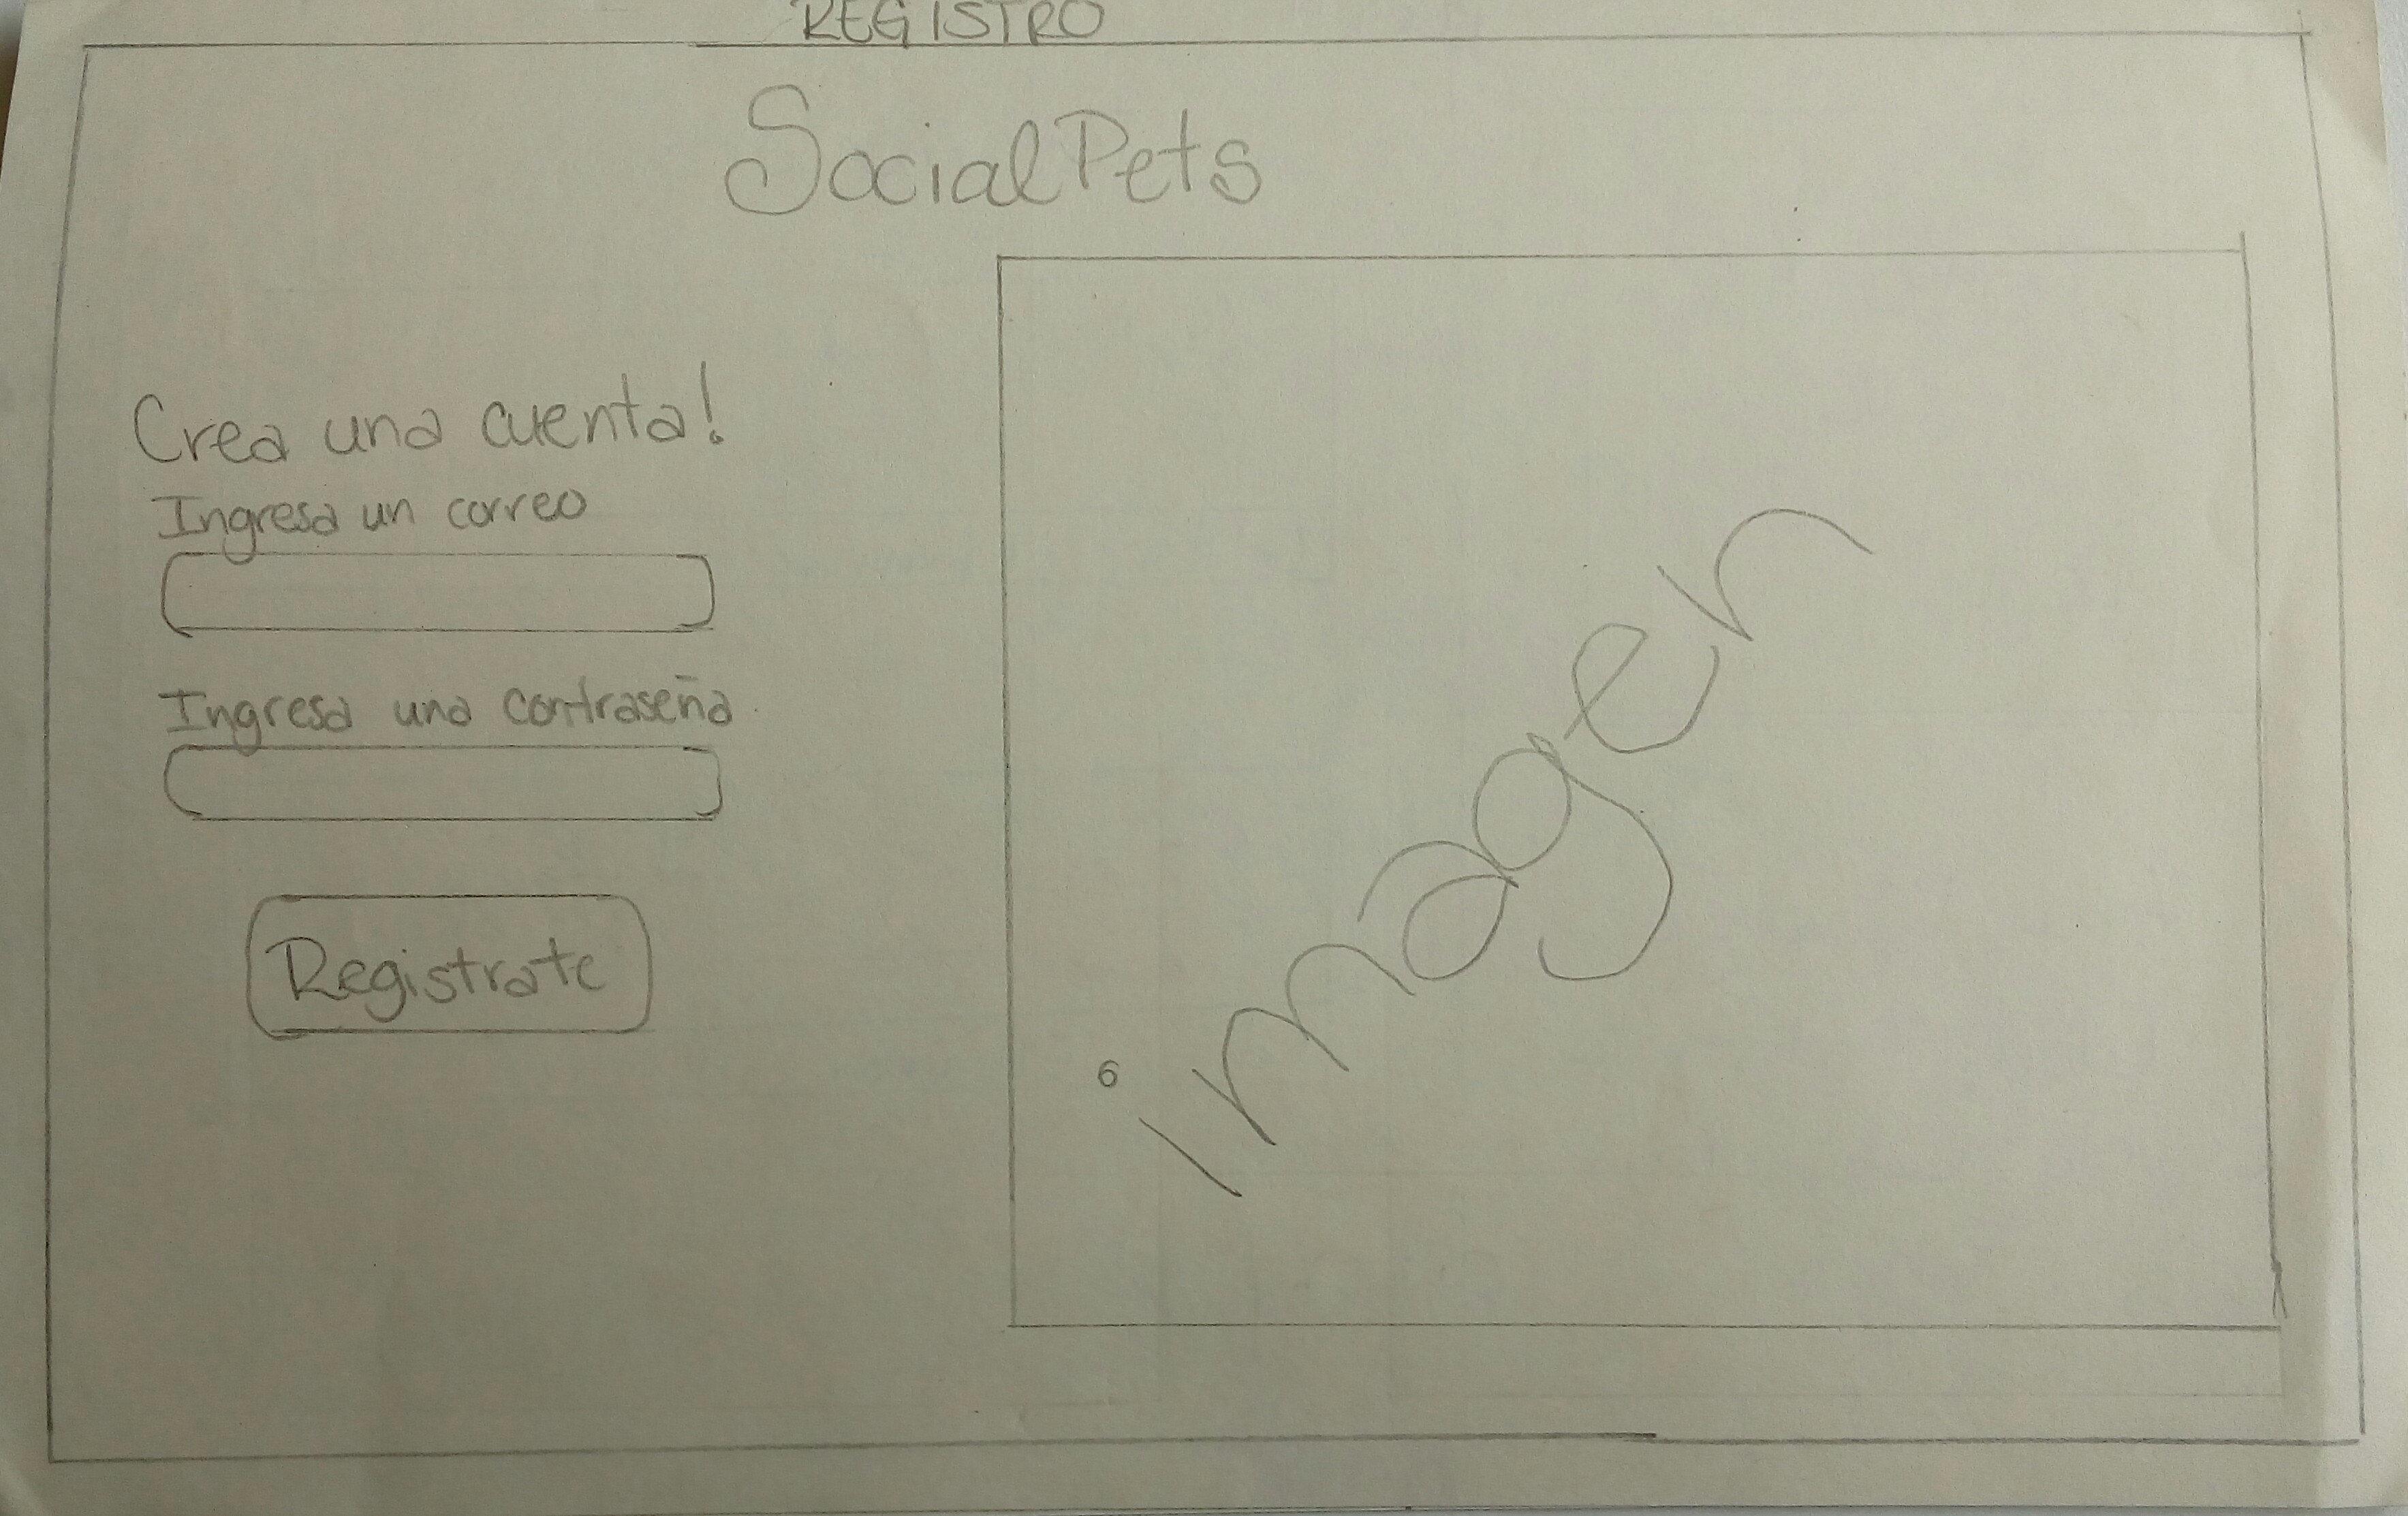 REGISTRO
SocialPets
Crea una cuenta!
Ingresa un correo
Ingresa una contraseña
Registrate
imagen